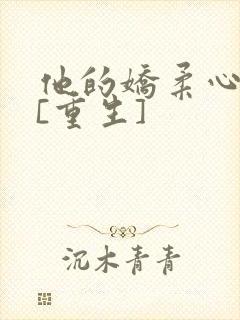 他的娇柔心
[重生]
沉木青青